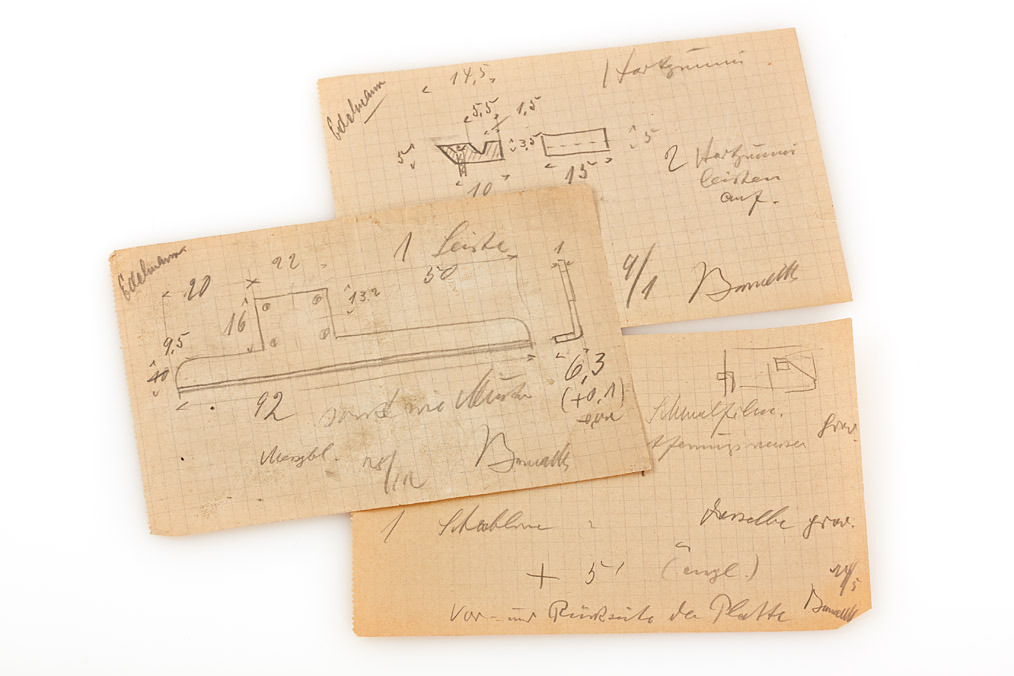 Edelmann
14,5
Hartgummi.
5,5 1,5
5 3,5 5
10 15
2 Hartgummi
leisten
auf.
4/1 Barnack
Edelmann
1 Leiste
20 22 50 1
16 13,2
9,5
92
6,3
(+0,1)
sonst wie Muster
Messbl.
Barnack
Schmalfilm.
grav.
1 Schablone
dieselbe grav.
+ 5'
(engl.)
Vor- und Rückseite der Platte
24/5
Barnack